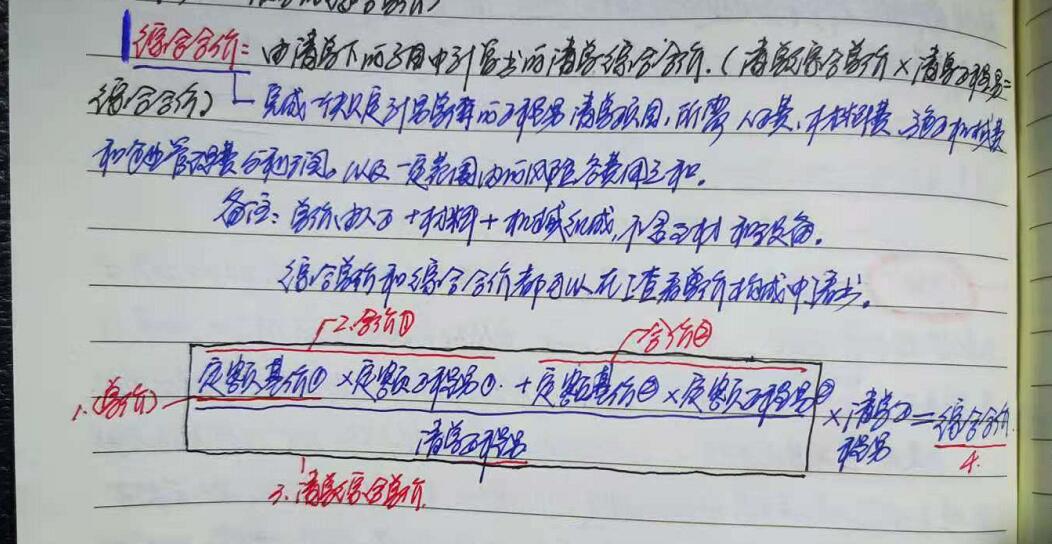 综合合价：由清单下的子目中引算出的清单综合合价.（清单综合单价×清单工程量=
综合合价） 完成一个规定计量单位的工程量清单项目，所需人工费、材料费、施工机械费
和企业管理费与利润。以及一定范围内的风险各费用之和。
备注：单价由人工+材料+机械组成，不含主材和设备。
综合单价和综合合价都可以在上查看单价构成中读出。
2.合价① 合价②
1.(单价) 定额基价①×定额工程量①.+定额基价②×定额工程量② ×清单工程量=综合合价.
清单工程量 4.
3.清单综合单价.